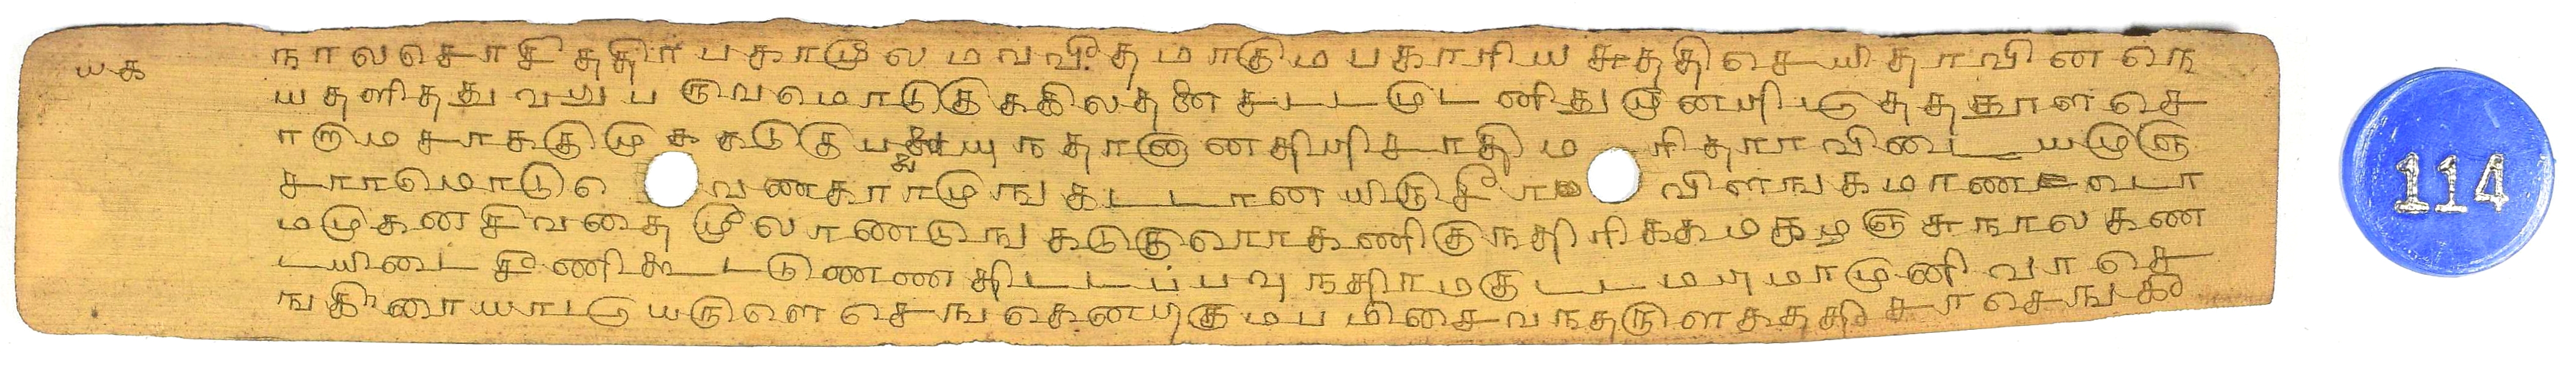 யக நாலசொசிததிர பகாமூல மவவிதமாகுமபகாரியசுததிசெயிதாவினநெ
யதனிததுவறுபருவமொடுகுககிலதனை சடடமுடனிதுமுனபிழுததகாளசெ
ாருமசாககுமுககடுகுப யுநதானுனதிரிசாதிம ரிதாரவிடையமுரு
சாரமொடு வணகாரமுஙகடடானயிருசீர விளஙகமாண வடா
மமுகனசிவதைமூலாணடுஙகடுகுவாாகணிகுநதிரிககமகழஞசுநாலகண
டயிடைசீணிகூடடுணணதிடடப்பவுநதிரமகுடடமருமாமுனிவாசெ
ஙகிளையாடடுயருளெசெஙகெணறகுமபமிசைவநதருளதததிசாசெஙகீ
114